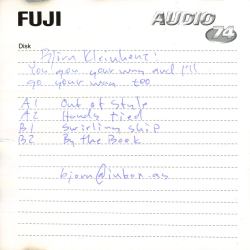 FUJI
AUDIO
74
Disk
Björn Kleinhenz:
You gou your way and I'll
go your way too
A1 Out of Style
A2 Hands tied
B1 Swirling ship
B2 By the Book
bjorn@inbox.as